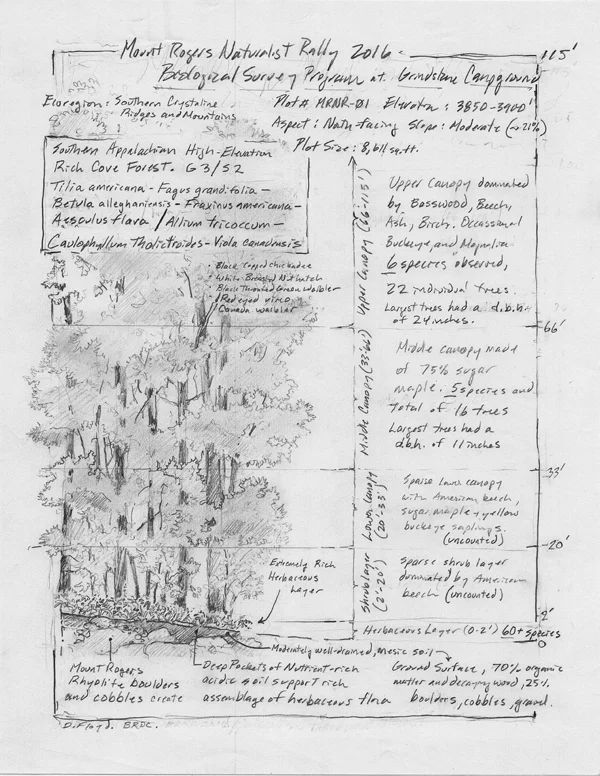 Mount Rogers Naturalist Rally 2016
Biological Survey Program at Grindstone Campground
115'
Ecoregion: Southern Crystaline
Ridges and Mountains
Plot# MRNR-01 Elevation: 3850-3900'
Aspect: North-facing Slope: Moderate (~21%)
Plot Size: 8,611 sq.ft.
Southern Appalachian High-Elevation
Rich Cove Forest. G3/S2
Tilia americana - Fagus grandifolia -
Betula alleghaniensis - Fraxinus americana -
Aesculus flava / Allium tricoccum -
Caulophyllum thalictroides - Viola canadensis
Black capped chickadee
White Breasted Nuthatch
Black Throated Green Warbler
Red eyed vireo
Canada warbler
Upper Canopy (66-115')
Upper Canopy dominated
by Basswood, Beech,
Ash, Birch. Occassional
Buckeye, and Magnolia
6 species observed,
22 individual trees.
Largest trees had a d.b.h.
of 24 inches.
66'
Middle Canopy (33-66')
Middle canopy made
of 75% sugar
maple. 5 species and
total of 16 trees
Largest trees had a
d.b.h. of 11 inches
33'
Lower Canopy
(20'-33')
Sparse Lower canopy
with American beech,
sugar maple + yellow
buckeye saplings.
(uncounted)
20'
Shrub layer
(2'-20')
Sparse shrub layer
dominated by American
beech (uncounted)
Extremely Rich
Herbaceous
Layer
2'
Herbaceous Layer (0-2') 60+ species
0
Moderately well-drained, mesic soil
Mount Rogers
Rhyolite boulders
and cobbles create
Deep Pockets of Nutrient-rich
acidic soil support rich
assemblage of herbaceous flora
Ground Surface, 70% organic
matter and decaying wood, 25%
boulders, cobbles, gravel.
D. Floyd. BRDC.